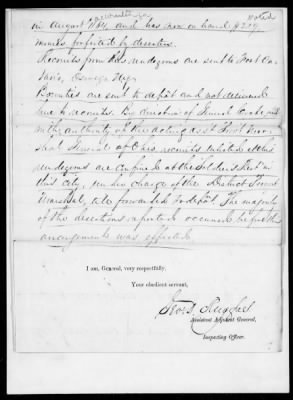 in August 1864 and has now on hand $279
money forfeited by deserters.
Recruits from this rendezvous are sent to Fort On-
tario, Oswego N.Y.
Bounties are sent to depot and not delivered
to recruits. By direction of General
on the authority of the acting asst Provost Mar-
shal General of Ohio, recruits enlisted at this
rendezvous are confined at the Soldiers Rest in
this City, under charge of the District Provost
Marshal, till forwarded to depot. The majority
of the desertions reported occurred before this
arrangement was effected
I am, General, very respectfully,
Your obedient servant,
Assistant Adjutant General,
Inspecting Officer.